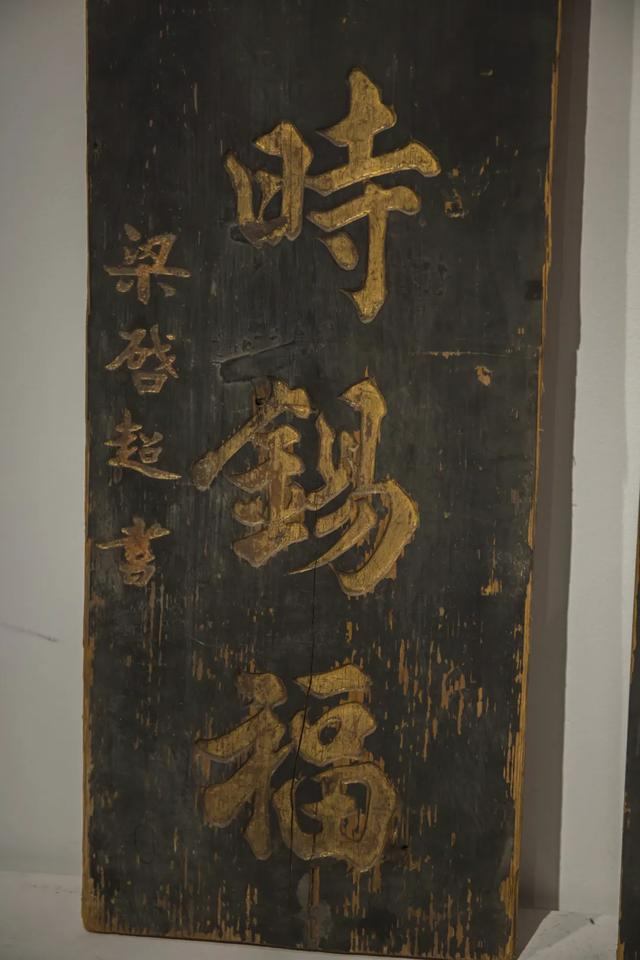 時錫福
梁啓超書